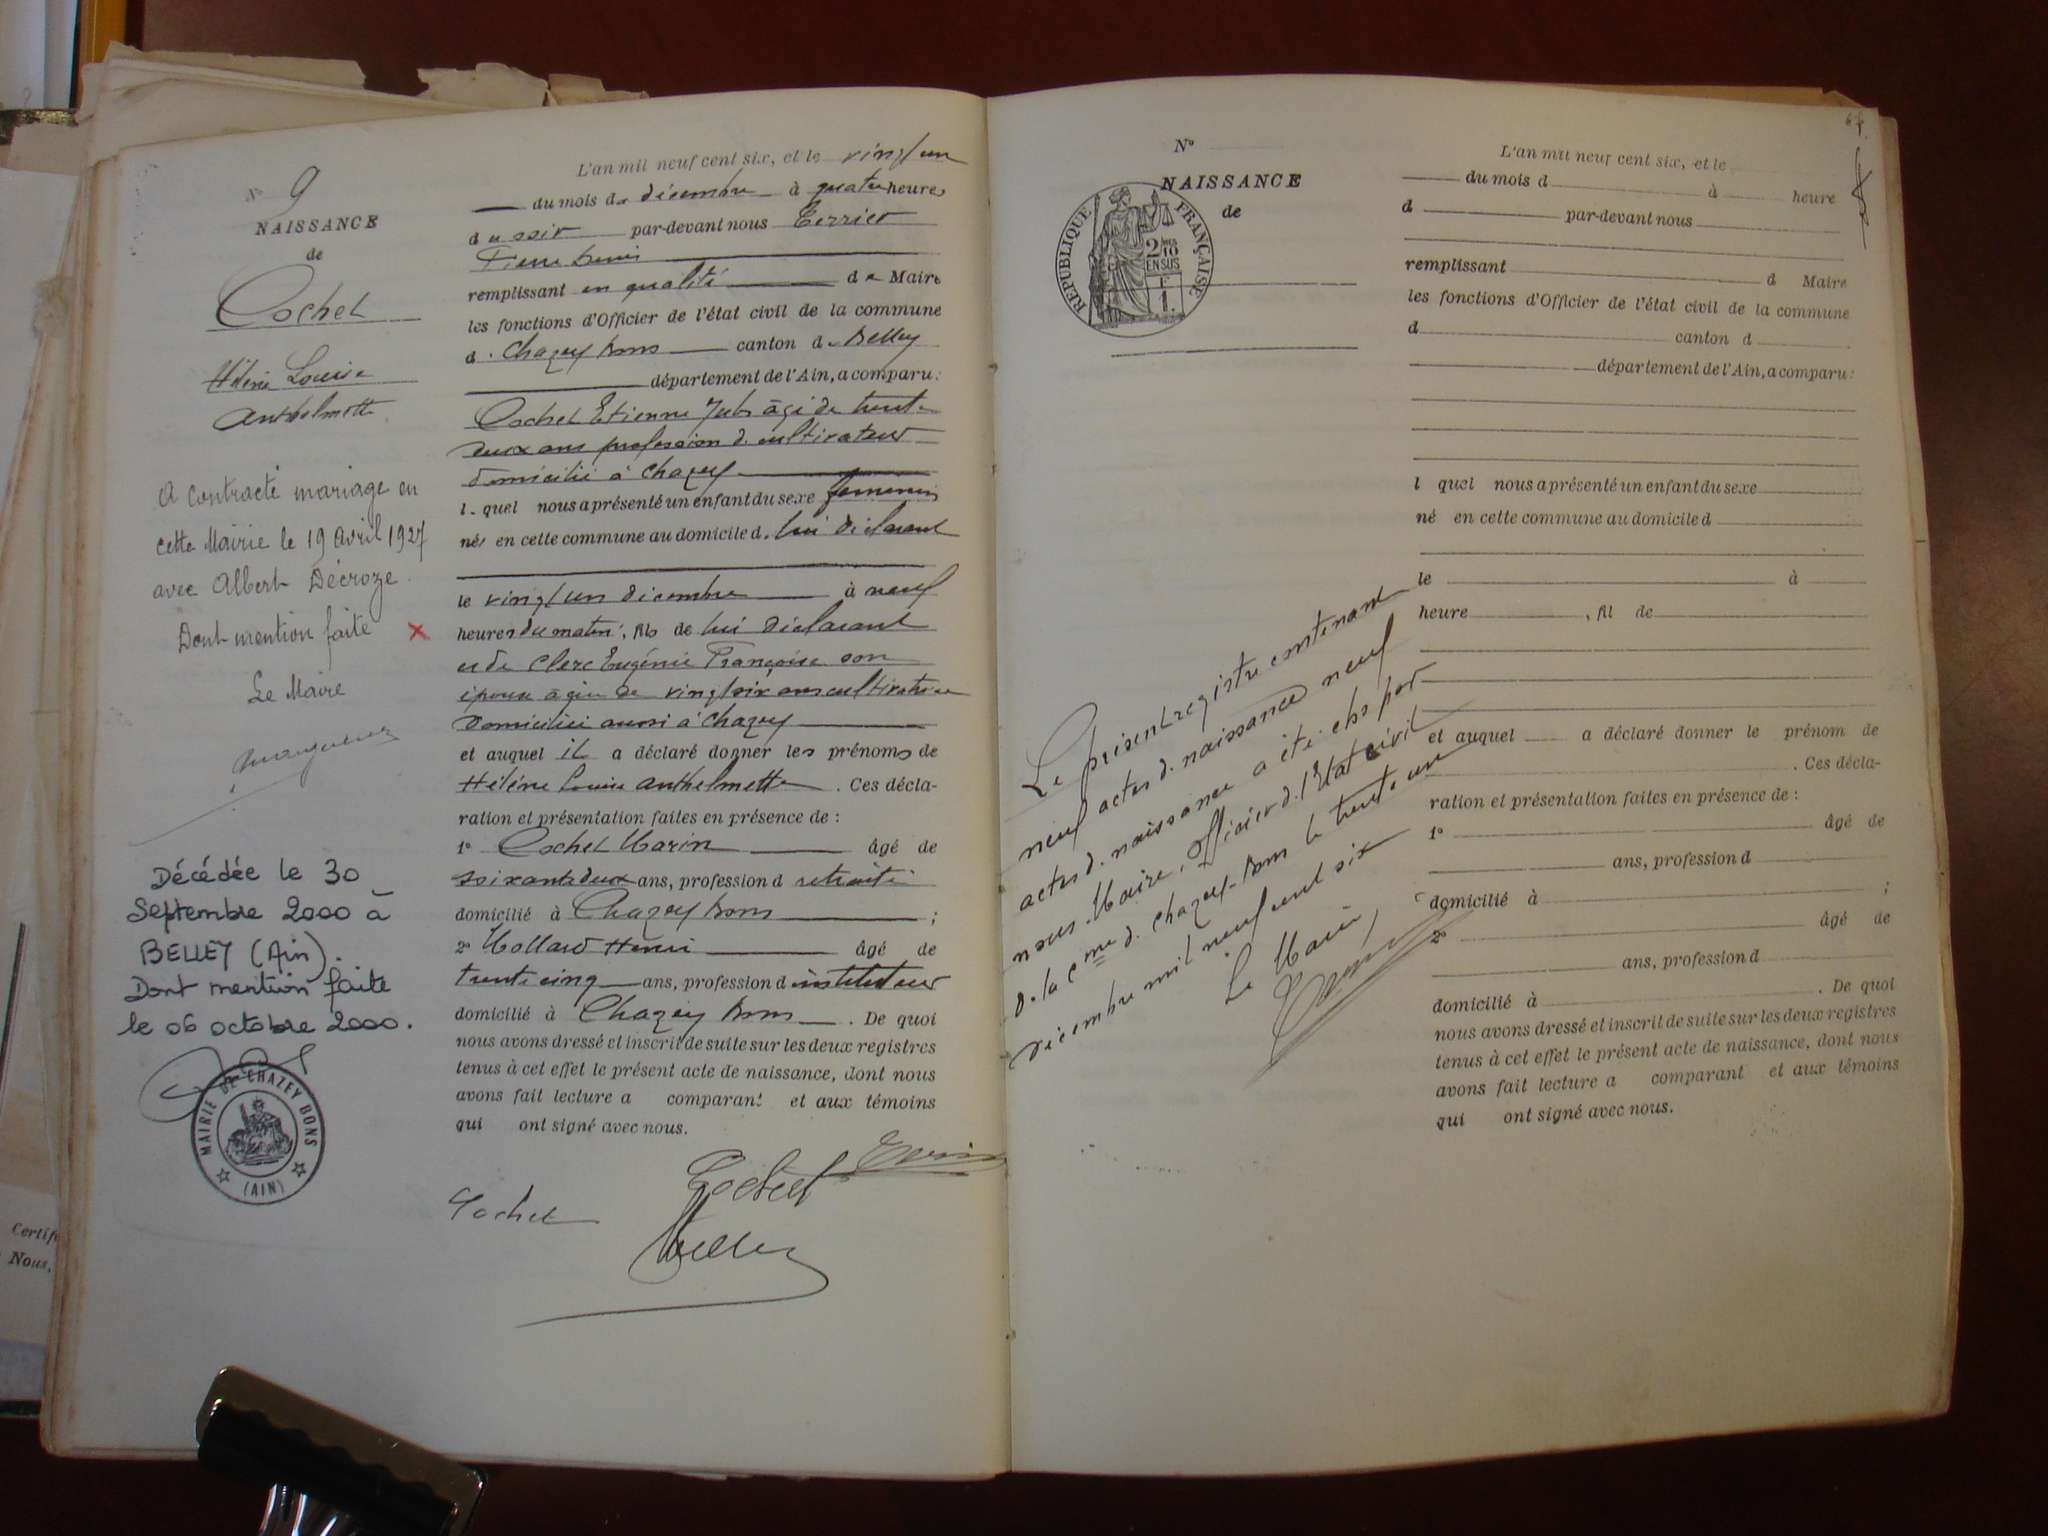 N° 9
NAISSANCE
de
Cochet
Hélène Louise
Anthelmette
A contracté mariage en
cette Mairie le 19 avril 1927
avec Albert Décroze.
Dont mention faite
Le Maire
Décédée le 30
Septembre 2000 à
BELLEY (Ain).
Dont mention faite
le 06 octobre 2000.
MAIRIE DE CHAZEY BONS
(AIN)
L'an mil neuf cent six, et le vingt un
du mois de décembre à quatre heures
du soir par-devant nous
Pierre Denis
remplissant en qualité de Maire
les fonctions d'Officier de l'état civil de la commune
d. Chazey Bons canton de Belley
département de l'Ain, a comparu:
Cochet Etienne Jules âgé de trente
deux ans profession d. cultivateur
domicilié à Chazey
l. quel nous a présenté un enfant du sexe féminin
née en cette commune au domicile d. lui déclarant
le vingt un décembre à neuf
heures du matin, fils de lui déclarant
et de Clerc Eugénie Françoise son
épouse agée de vingt six ans cultivatrice
domiciliée aussi à Chazey
et auquel il a déclaré donner les prénoms de
Hélène Louise Anthelmette. Ces décla-
ration et présentation faites en présence de :
1° Cochet Marin âgé de
soixante deux ans, profession d retraité
domicilié à Chazey Bons ;
2° Mollard Henri âgé de
trente cinq ans, profession d instituteur
domicilié à Chazey Bons. De quoi
nous avons dressé et inscrit de suite sur les deux registres
tenus à cet effet le présent acte de naissance, dont nous
avons fait lecture a comparant et aux témoins
qui ont signé avec nous.
Cochet
Cochet
N°
NAISSANCE
de
RÉPUBLIQUE FRANÇAISE
2/10
EN SUS
F
1.
Le présent registre contenant
neuf actes d. naissance neuf
actes d. naissance a été clos par
nous Maire, officier d. l'Etat civil
d. la Cme d. Chazey-Bons le trente un
décembre mil neuf cent six
Le Maire,
L'an mil neuf cent six, et le
du mois d à heure
d par-devant nous
remplissant d Maire
les fonctions d'Officier de l'état civil de la commune
d canton d
département de l'Ain, a comparu:
l quel nous a présenté un enfant du sexe
né en cette commune au domicile d
le à
heure , fil de
et auquel a déclaré donner le prénom de
. Ces décla-
ration et présentation faites en présence de :
1° âgé de
ans, profession d
domicilié à ;
2° âgé de
ans, profession d
domicilié à . De quoi
nous avons dressé et inscrit de suite sur les deux registres
tenus à cet effet le présent acte de naissance, dont nous
avons fait lecture a comparant et aux témoins
qui ont signé avec nous.
Certif
Nous,